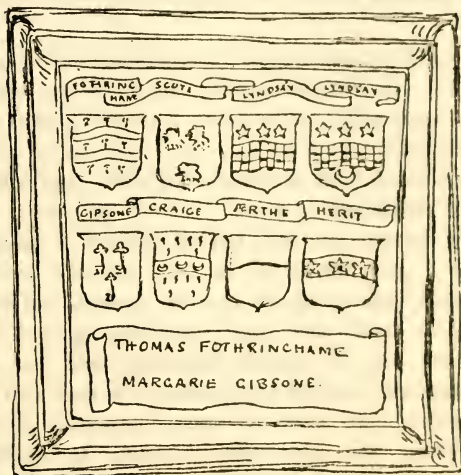 FOTHRING HAME SCOTE LYNDSAY LYNDSAY
GIPSONE CRAIGE ÆRTHE HERIT
THOMAS FOTHRINCHAME
MARGARIE GIBSONE.